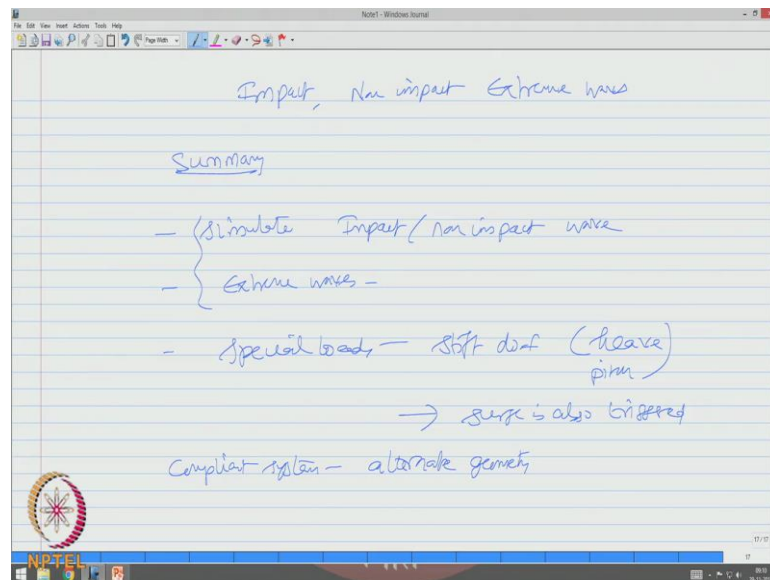 Note1 - Windows Journal
File Edit View Insert Actions Tools Help
Page Width
Impact, Non impact Extreme waves
Summary
- Simulate Impact / non impact wave
- Extreme waves -
- Special loads - stiff dof (heave
pitch)
→ surge is also triggered
Compliant system - alternate geometry
NPTEL
17/17
17